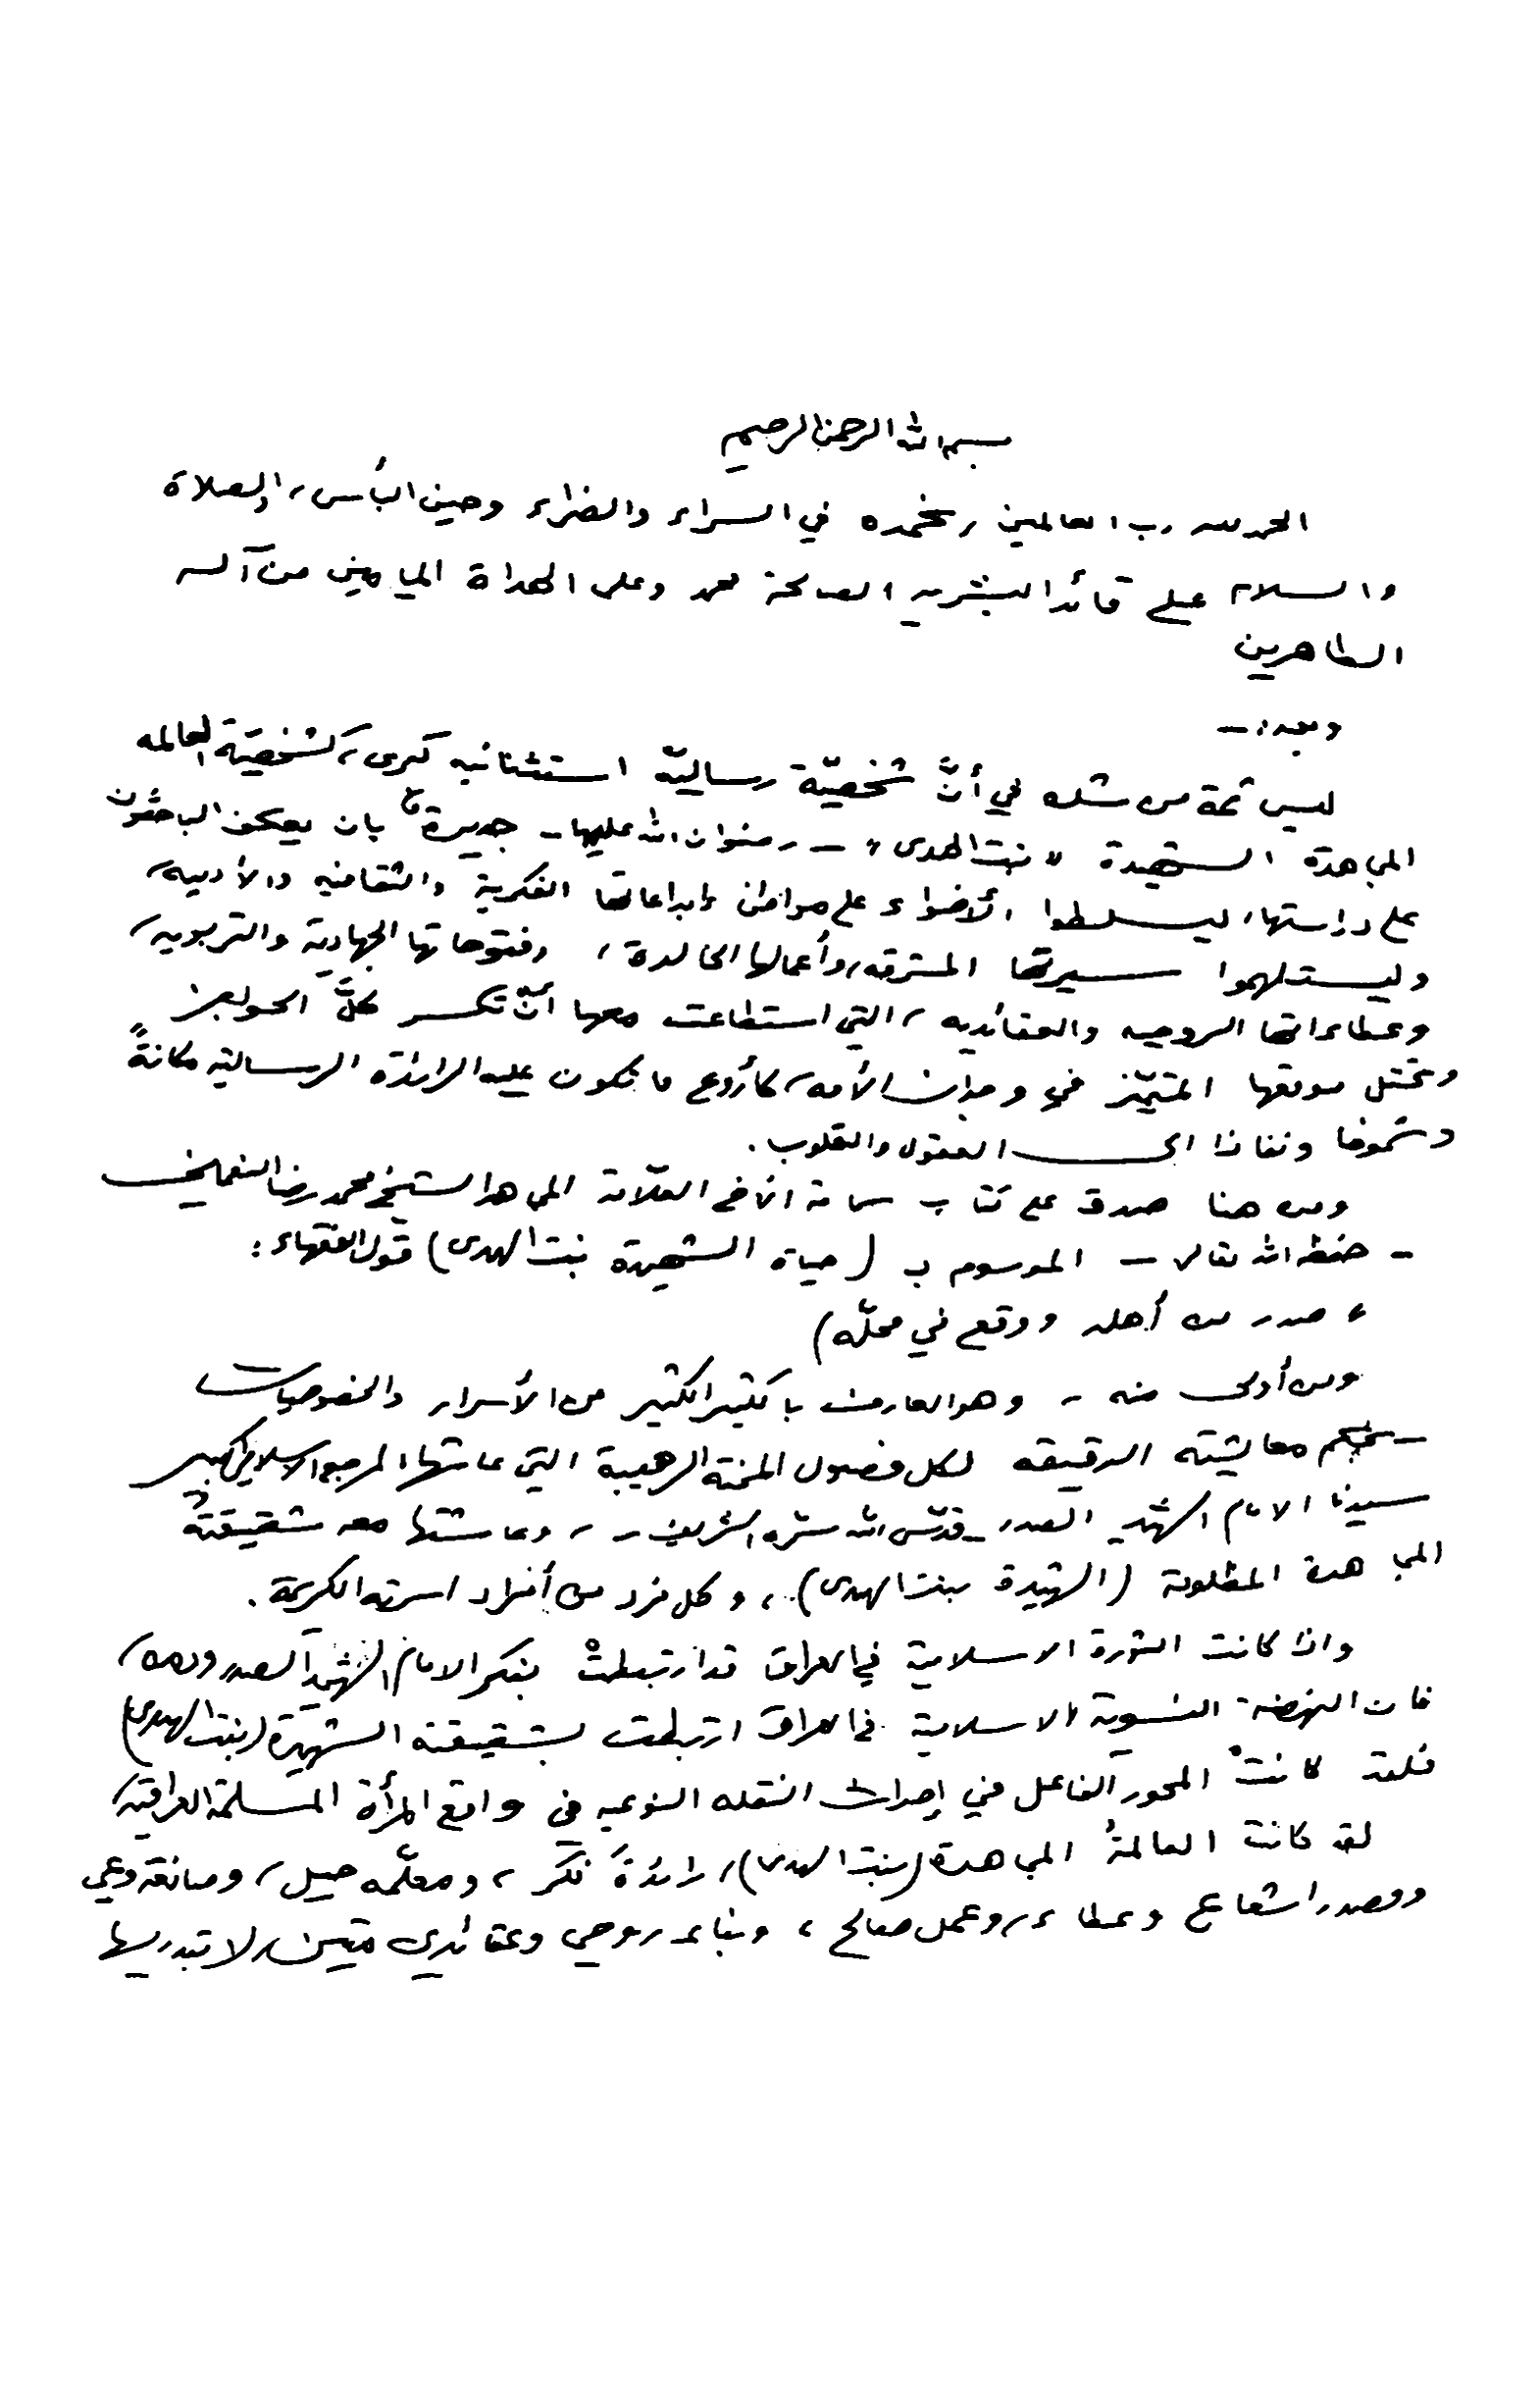 بسم الله الرحمن الرحيم
الحمد لله رب العالمين، نحمده في السراء والضراء وحين البأس، والصلاة
والسلام على قائد البشرية الصالحة محمد وعلى الهداة الميامين من آله
الطاهرين
وبعد: -
ليس ثمة من شك في أنَّ شخصيّة رساليّة استثنائيه كبرى، كشخصيّة العالمه
المجاهدة الشهيدة «بنت الهدى» - رضوان الله عليها - جديرة بان يعكف الباحثون
على دراستها، ليسلطوا الأضواء على مواطن إبداعاتها الفكرية والثقافيه والأدبيه،
وليستلهموا سيرتها المشرقه، وأعمالها الخالدة، وفتوحاتها الجهادية والتربويه،
وعطاءاتها الروحيه والعقائديه، التي استطاعت معها أنْ تكسر كلَّ الحواجز
وتحتل موقعها المتميّز في وجدان الأمه، كأروع ما تكون عليه الرائدة الرسالية مكانةً
وشموخا ونفاذا الى العقول والقلوب.
ومن هنا صدق على كتاب سماحة الاخ العلّامة المجاهد الشيخ محمد رضا النعماني
- حفظه الله تعالى - الموسوم ب (حياة الشهيدة بنت الهدى) قول الفقهاء:
«صدر من أهله ووقع في محلّه)
ومن أولى منه - وهو العارف بالكثير الكثير من الأسرار والخصوصيات
- بحكم معايشته الدقيقه لكل فصول المحنة الرهيبة التي عاشها المرجع الاسلامي الكبير
سيدنا الامام الشهيد الصدر - قدّس الله سرّه الشريف - ، وعاشتها معه شقيقتهُ
المجاهدة المظلومة (الشهيدة بنت الهدى)، وكل فرد من أفراد اسرته الكريمة.
واذا كانت الثورة الاسلامية في العراق قد ارتبطتْ بفكر الامام الشهيد الصدر ودمه،
فان النهضة النسوية الاسلامية في العراق ارتبطت بشقيقته الشهيدة (بنت الهدى)
فلقد كانتْ المحور الفاعل في إحداث النقله النوعيه في واقع المرأة المسلمة العراقية،
لقد كانت العالمةُ المجاهدة (بنت الهدى)، رائدةَ فكر، ومعلّمه جيل، وصانعة وعي
ومصدر اشعاع وعطاء، وعمل صالح، وبناء روحي وعقائدي متين، لا تبدرسها